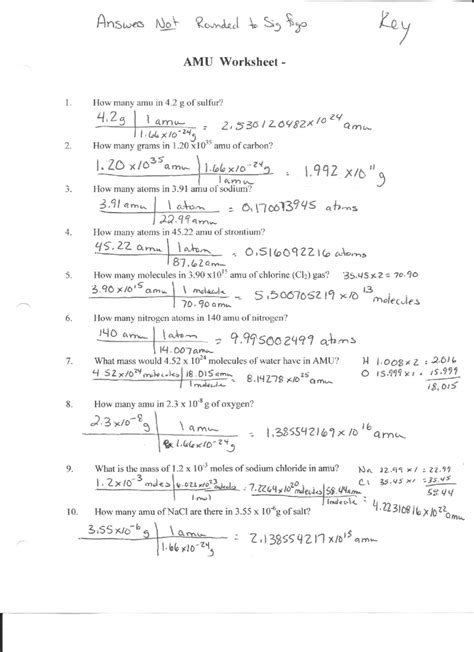 Answers Not Rounded to Sig figs
Key
AMU Worksheet -
1. How many amu in 4.2 g of sulfur?
4.2g | 1 amu
1.66 x10⁻²⁴g = 2.530120482 x10²⁴ amu
2. How many grams in 1.20 x10³⁵ amu of carbon?
1.20 x10³⁵ amu | 1.66 x10⁻²⁴g
1 amu = 1.992 x10¹¹ g
3. How many atoms in 3.91 amu of sodium?
3.91 amu | 1 atom
22.99 amu = 0.170073945 atoms
4. How many atoms in 45.22 amu of strontium?
45.22 amu | 1 atom
87.62 amu = 0.516092216 atoms
5. How many molecules in 3.90 x10¹⁵ amu of chlorine (Cl₂) gas? 35.45 x 2 = 70.90
3.90 x10¹⁵ amu | 1 molecule
70.90 amu = 5.500705219 x10¹³ molecules
6. How many nitrogen atoms in 140 amu of nitrogen?
140 amu | 1 atom
14.007 amu = 9.995002499 atoms
7. What mass would 4.52 x 10²⁴ molecules of water have in AMU? H 1.008 x 2 = 2.016
4.52 x10²⁴ molecules | 18.015 amu
1 molecule = 8.14278 x10²⁵ amu
O 15.999 x 1 = 15.999
18.015
8. How many amu in 2.3 x 10⁻⁸ g of oxygen?
2.3 x10⁻⁸ g | 1 amu
1.66 x10⁻²⁴g = 1.385542169 x10¹⁶ amu
9. What is the mass of 1.2 x 10⁻³ moles of sodium chloride in amu? Na 22.99 x 1 = 22.99
Cl 35.45 x 1 = 35.45
58.44
1.2 x10⁻³ moles | 6.022 x10²³ molecules
1 mol = 7.2264 x10²⁰ molecules | 58.44 amu
1 molecule = 4.22310816 x10²² amu
10. How many amu of NaCl are there in 3.55 x 10⁻⁶ g of salt?
3.55 x10⁻⁶ g | 1 amu
1.66 x10⁻²⁴g = 2.138554217 x10¹⁸ amu